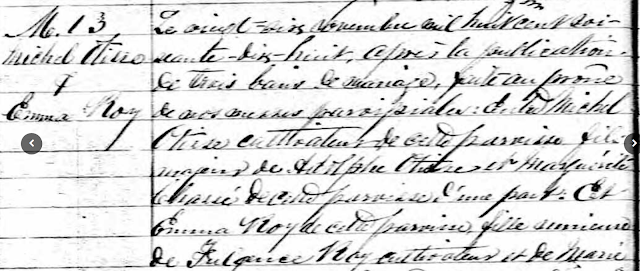 M. 13
Michel Otisse
&
Emma Roy
Le vingt-six novembre mil huit cent soi-
xante-dix-huit, après la publication
de trois bans de mariage, faite au prône
de nos messes paroissiales entre Michel
Otisse cultivateur de cette paroisse fils
majeur de Adolphe Otisse et Marguerite
Chassé de cette paroisse d'une part; Et
Emma Roy de cette paroisse, fille mineure
de Fulgence Roy cultivateur et de Marie